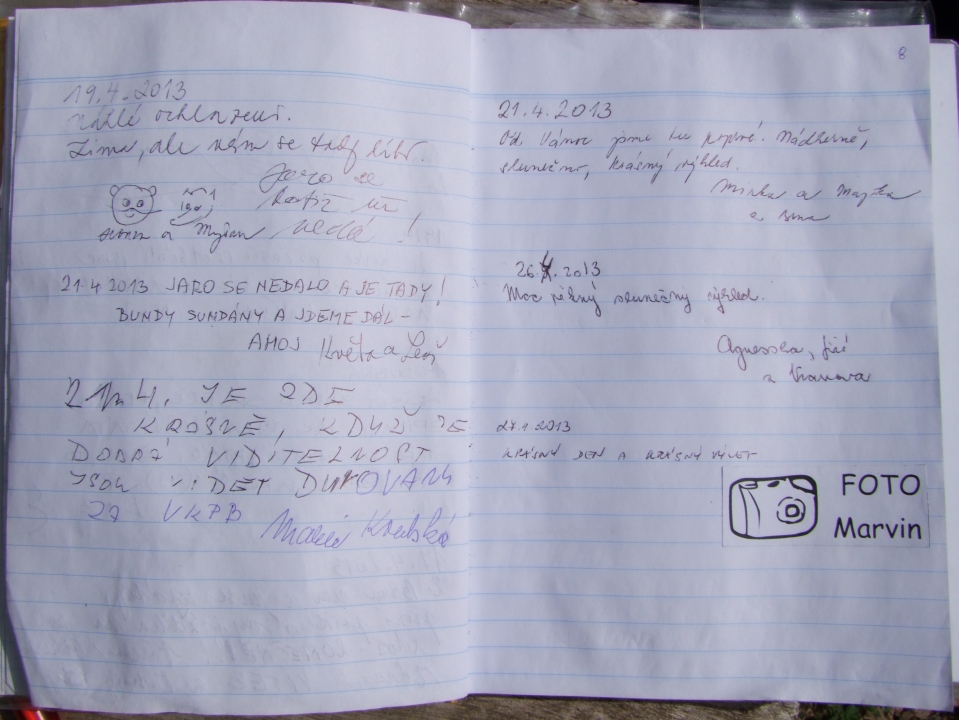 19.4.2013
náhlé ochlazení.
Zima, ale nám se tady líbí.
Jaro se
totiž už
nedá !
a Myšan
21.4 2013 JARO SE NEDALO A JE TADY!
BUNDY SUNDÁNY A JDEME DÁL -
AHOJ Květa a Leoš
JE ZDE
KRÁSNĚ, KDYŽ JE
DOBRÁ VIDITELNOST
JSOU VIDĚT DUKOVANY
ZA VKPB
21.4.2013
Od Vánoc jsme tu poprvé. Nádherně,
slunečno, krásný výhled.
Mirka a Majka
a
26.4.2013
Moc pěkný slunečný výhled.
Agnesska, Jiří
a
2013
KRÁSNÝ DEN A KRÁSNÝ VÝLET
FOTO
Marvin
8